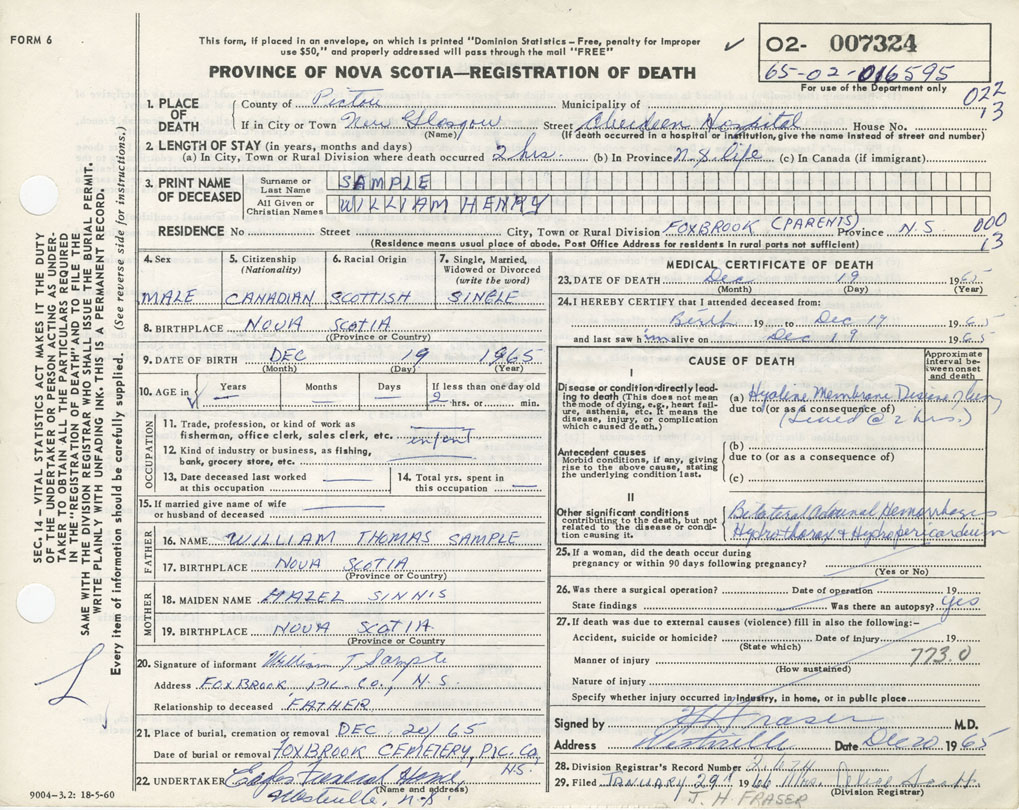 FORM 6
This form, if placed in an envelope, on which is printed "Dominion Statistics – Free, penalty for improper
use $50," and properly addressed will pass through the mail "FREE"
✓
02- 007324
65-02-016595
For use of the Department only
PROVINCE OF NOVA SCOTIA—REGISTRATION OF DEATH
022
13
1. PLACE OF DEATH
County of Pictou Municipality of
If in City or Town New Glasgow Street Aberdeen Hospital House No.
(Name) (If death occurred in a hospital or institution, give the name instead of street and number)
2. LENGTH OF STAY (in years, months and days)
(a) In City, Town or Rural Division where death occurred 2 hrs. (b) In Province N.S. life (c) In Canada (if immigrant)
3. PRINT NAME OF DECEASED
Surname or Last Name SAMPLE
All Given or Christian Names WILLIAM HENRY
RESIDENCE No Street City, Town or Rural Division FOXBROOK (PARENTS) Province N.S.
000
13
(Residence means usual place of abode. Post Office Address for residents in rural parts not sufficient)
4. Sex MALE
5. Citizenship (Nationality) CANADIAN
6. Racial Origin SCOTTISH
7. Single, Married, Widowed or Divorced (write the word) SINGLE
8. BIRTHPLACE NOVA SCOTIA
(Province or Country)
9. DATE OF BIRTH DEC 19 1965
(Month) (Day) (Year)
10. AGE in Years — Months — Days — If less than one day old 2 hrs. or min.
OCCUPATION
11. Trade, profession, or kind of work as
fisherman, office clerk, sales clerk, etc. infant
12. Kind of industry or business, as fishing,
bank, grocery store, etc. —
13. Date deceased last worked at this occupation —
14. Total yrs. spent in this occupation —
15. If married give name of wife
or husband of deceased —
FATHER
16. NAME WILLIAM THOMAS SAMPLE
17. BIRTHPLACE NOVA SCOTIA
(Province or Country)
MOTHER
18. MAIDEN NAME HAZEL SINNIS
19. BIRTHPLACE NOVA SCOTIA
(Province or Country
20. Signature of informant William T Sample
Address FOXBROOK, PIC. CO., N.S.
Relationship to deceased FATHER
21. Place of burial, cremation or removal DEC. 20/65
Date of burial or removal FOXBROOK CEMETERY, PIC. CO, N.S.
22. UNDERTAKER Funeral Home,
(Name and address)
Westville, N.S.
MEDICAL CERTIFICATE OF DEATH
23. DATE OF DEATH Dec 19 1965
(Month) (Day) (Year)
24. I HEREBY CERTIFY that I attended deceased from:
Birth 19 to Dec 19 1965
and last saw him alive on Dec 19 1965
CAUSE OF DEATH
Approximate interval between onset and death
I
Disease or condition directly leading to death (This does not mean the mode of dying, e.g., heart failure, asthenia, etc. It means the disease, injury, or complication which caused death.)
(a) Hyaline Membrane Disease of lung
due to (or as a consequence of)
(Lived @ 2 hrs.)
Antecedent causes
Morbid conditions, if any, giving rise to the above cause, stating the underlying condition last.
(b)
due to (or as a consequence of)
(c)
II
Other significant conditions
contributing to the death, but not related to the disease or condition causing it.
Bilateral Adrenal Hemorrhages
Hydrothorax & Hydropericardium
25. If a woman, did the death occur during
pregnancy or within 90 days following pregnancy?
(Yes or No)
26. Was there a surgical operation? Date of operation 19
State findings Was there an autopsy? yes
27. If death was due to external causes (violence) fill in also the following:–
Accident, suicide or homicide? Date of injury 19
(State which)
Manner of injury 773.0
(How sustained)
Nature of injury
Specify whether injury occurred in industry, in home, or in public place
Signed by Fraser M.D.
Address Westville Date Dec 20 1965
28. Division Registrar's Record Number
29. Filed JANUARY 29th 1966 Mrs. Scott
(Division Registrar)
J. H. FRASER
SEC. 14 – VITAL STATISTICS ACT MAKES IT THE DUTY
OF THE UNDERTAKER OR PERSON ACTING AS UNDER-
TAKER TO OBTAIN ALL THE PARTICULARS REQUIRED
IN THE "REGISTRATION OF DEATH" AND TO FILE THE
SAME WITH THE DIVISION REGISTRAR WHO SHALL ISSUE THE BURIAL PERMIT.
WRITE PLAINLY WITH UNFADING INK. THIS IS A PERMANENT RECORD.
Every item of information should be carefully supplied. (See reverse side for instructions.)
9004-3.2: 18-5-60